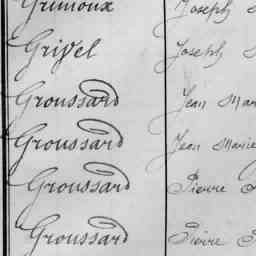 Grimoux Joseph
Grivel Joseph
Groussard Jean Mar
Groussard Jean Marie
Groussard Pierre
Groussard Pierre